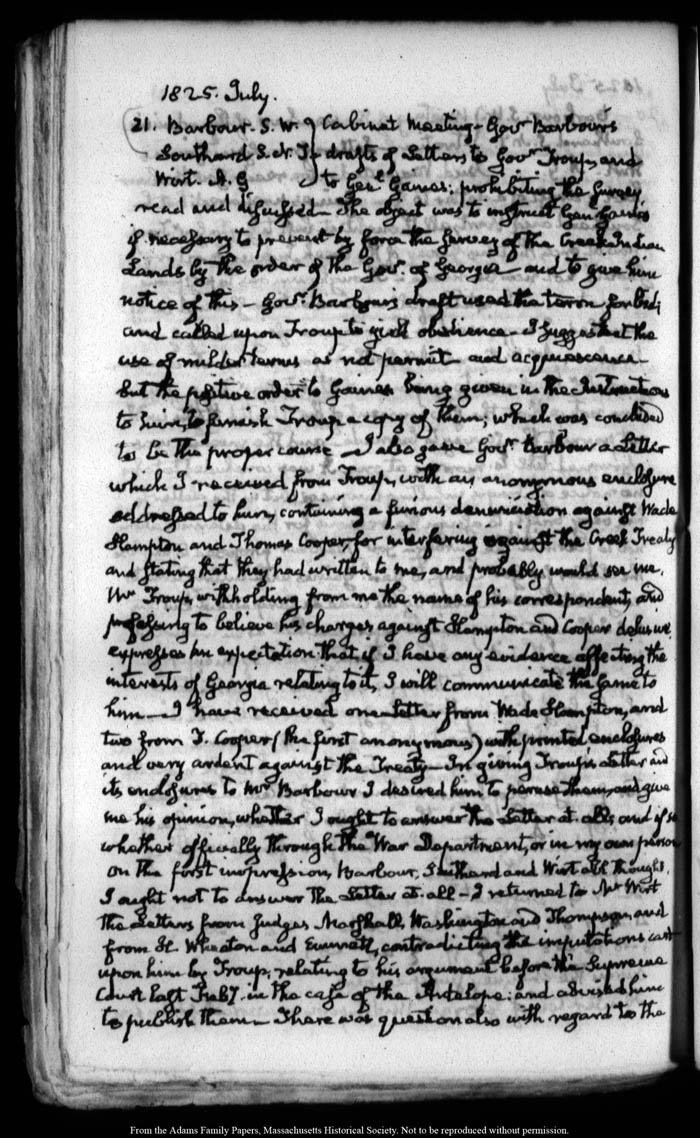 1825. July.
21. Barbour. S. W. } Cabinet Meeting— Govr. Barbour's
Southard S. N. } drafts of Letters to Govr. Troup, and
Wirt. A. G } to Genl. Gaines: prohibiting the Survey
read and discussed— The object was to instruct Genl. Gaines
if necessary to prevent by force the Survey of the Creek Indian
Lands by the order of the Govr. of Georgia— and to give him
notice of this— Govr. Barbour's draft used the term forbid;
and called upon Troup to yield obedience— I suggested the
use of milder terms as not permit— and acquiescence—
but the positive order to Gaines being given in the Instructions
to him, to furnish Troup a copy of them; which was concluded
to be the proper course— I also gave Govr. Barbour a Letter
which I received from Troup, with an anonymous enclosure
addressed to him, containing a furious denunciation against Wade
Hampton and Thomas Cooper, for interfering against the Creek Treaty
and stating that they had written to me, and probably would see me.
Mr Troup, withholding from me the name of his correspondent, and
professing to believe his charges against Hampton and Cooper
expresses an expectation that if I have any evidence affecting the
interests of Georgia relating to it, I will communicate the same to
him— I have received one Letter from Wade Hampton, and
two from T. Cooper (the first anonymous) with printed enclosures
and very ardent against the Treaty— In giving Troup's Letter and
its enclosures to Mr Barbour I desired him to peruse them, and give
me his opinion, whether I ought to answer the Letter at all, and if so
whether officially through the War Department, or in my own person
on the first impression, Barbour, Southard and Wirt all thought,
I ought not to answer the Letter at all— I returned to Mr Wirt
the Letters from Judges Marshall, Washington and Thompson, and
from H. Wheaton and Emmett, contradicting the imputations cast
upon him by Troup, relating to his argument before the Supreme
Court last Feby. in the case of the Antelope: and advised him
to publish them— There was question also with regard to the
From the Adams Family Papers, Massachusetts Historical Society. Not to be reproduced without permission.